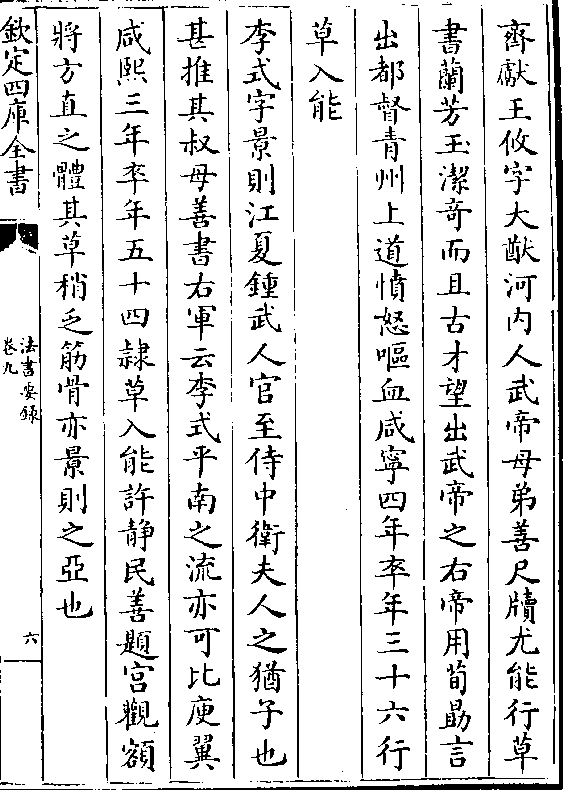 齊獻王攸字大猷河内人武帝母弟善尺牘尤能行草
書蘭芳玉潔竒而且古才望出武帝之右帝用荀勗言
出都督青州上道憤怒嘔血咸寧四年卒年三十六行
草入能
李式字景則江夏鍾武人官至侍中衛夫人之猶子也
甚推其叔母善書右軍云李式平南之流亦可比庾翼
咸熙三年卒年五十四隷草入能許静民善題宫觀額
將方直之體其草稍乏筋骨亦景則之亞也
欽定四庫全書
法書要録
卷九
六